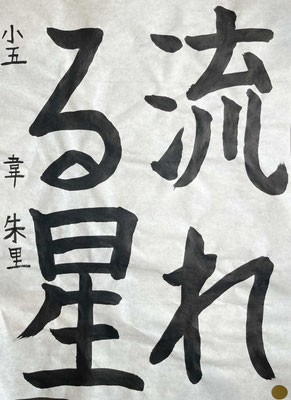 流れ
る星
小五 韋 朱里